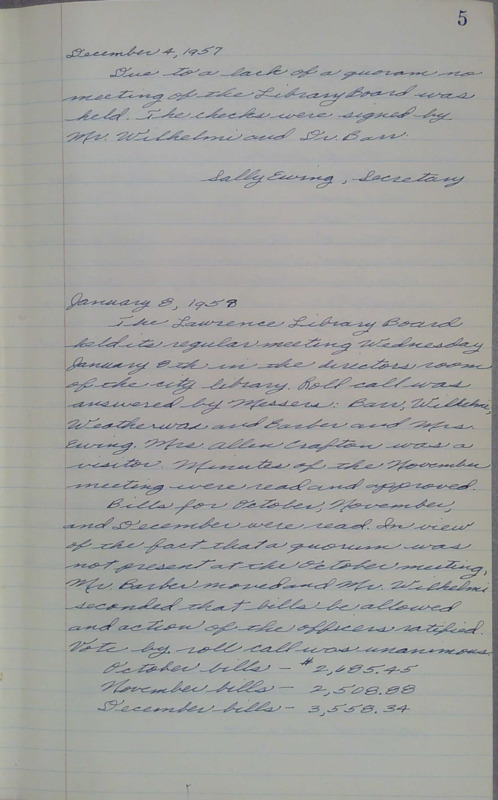 5
December 4, 1957
Due to a lack of a quorum no
meeting of the Library Board was
held. The checks were signed by
Mr. Wilhelmi and Dr. Barr.
Sally Ewing, Secretary
January 8, 1958
The Lawrence Library Board
held its regular meeting Wednesday
January 8th in the directors room
of the city library. Roll call was
answered by Messers: Barr, Wilhelmi,
Weatherwax and Barber and Mrs.
Ewing. Mrs Allen Crafton was a
visitor. Minutes of the November
meeting were read and approved.
Bills for October, November,
and December were read. In view
of the fact that a quorum was
not present at the October meeting,
Mr. Barber moved and Mr. Wilhelmi
seconded that bills be allowed
and action of the officers ratified.
Vote by roll call was unanimous.
October bills - $2,685.45
November bills - 2,508.88
December bills - 3,558.34